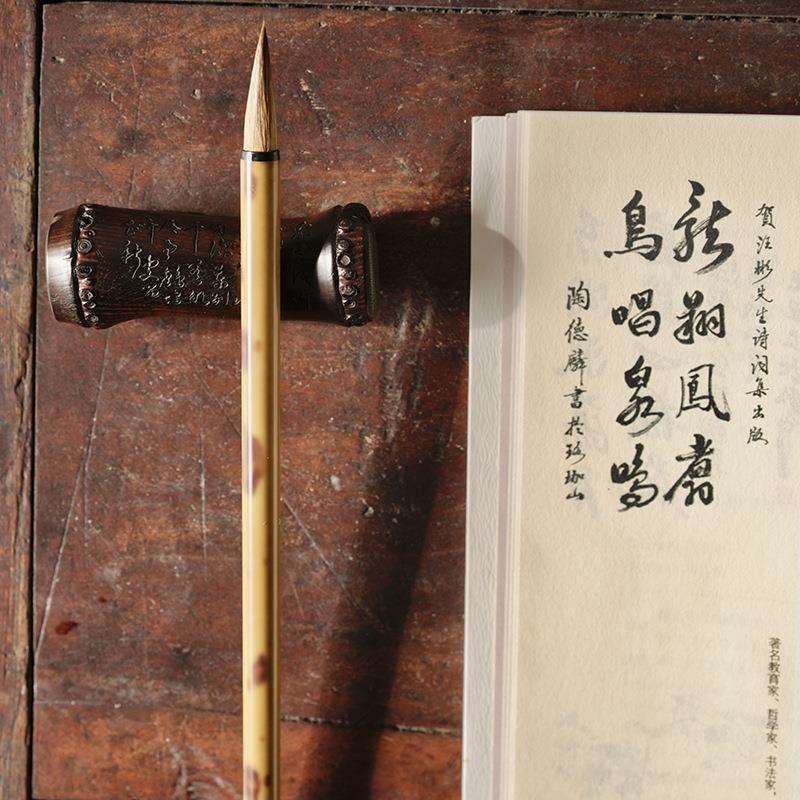 賀汪彬先生诗词集出版
龍翔鳳翥
鳥唱泉鳴
陶德麟書於珞珈山
著名教育家、哲学家、书法家、